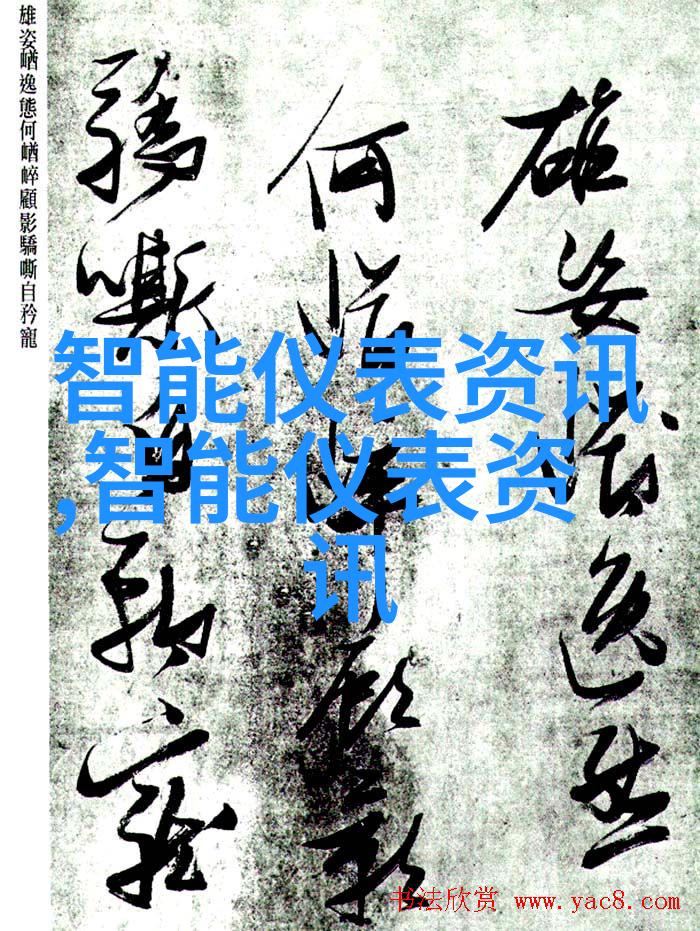 雄姿崷逸態
何崷崪顧影
驕嘶自矜寵
雄姿崷逸態何崷崪顧影驕嘶自矜寵
智能仪表资讯
,智能仪表资
讯
书法欣赏 www.yac8.com